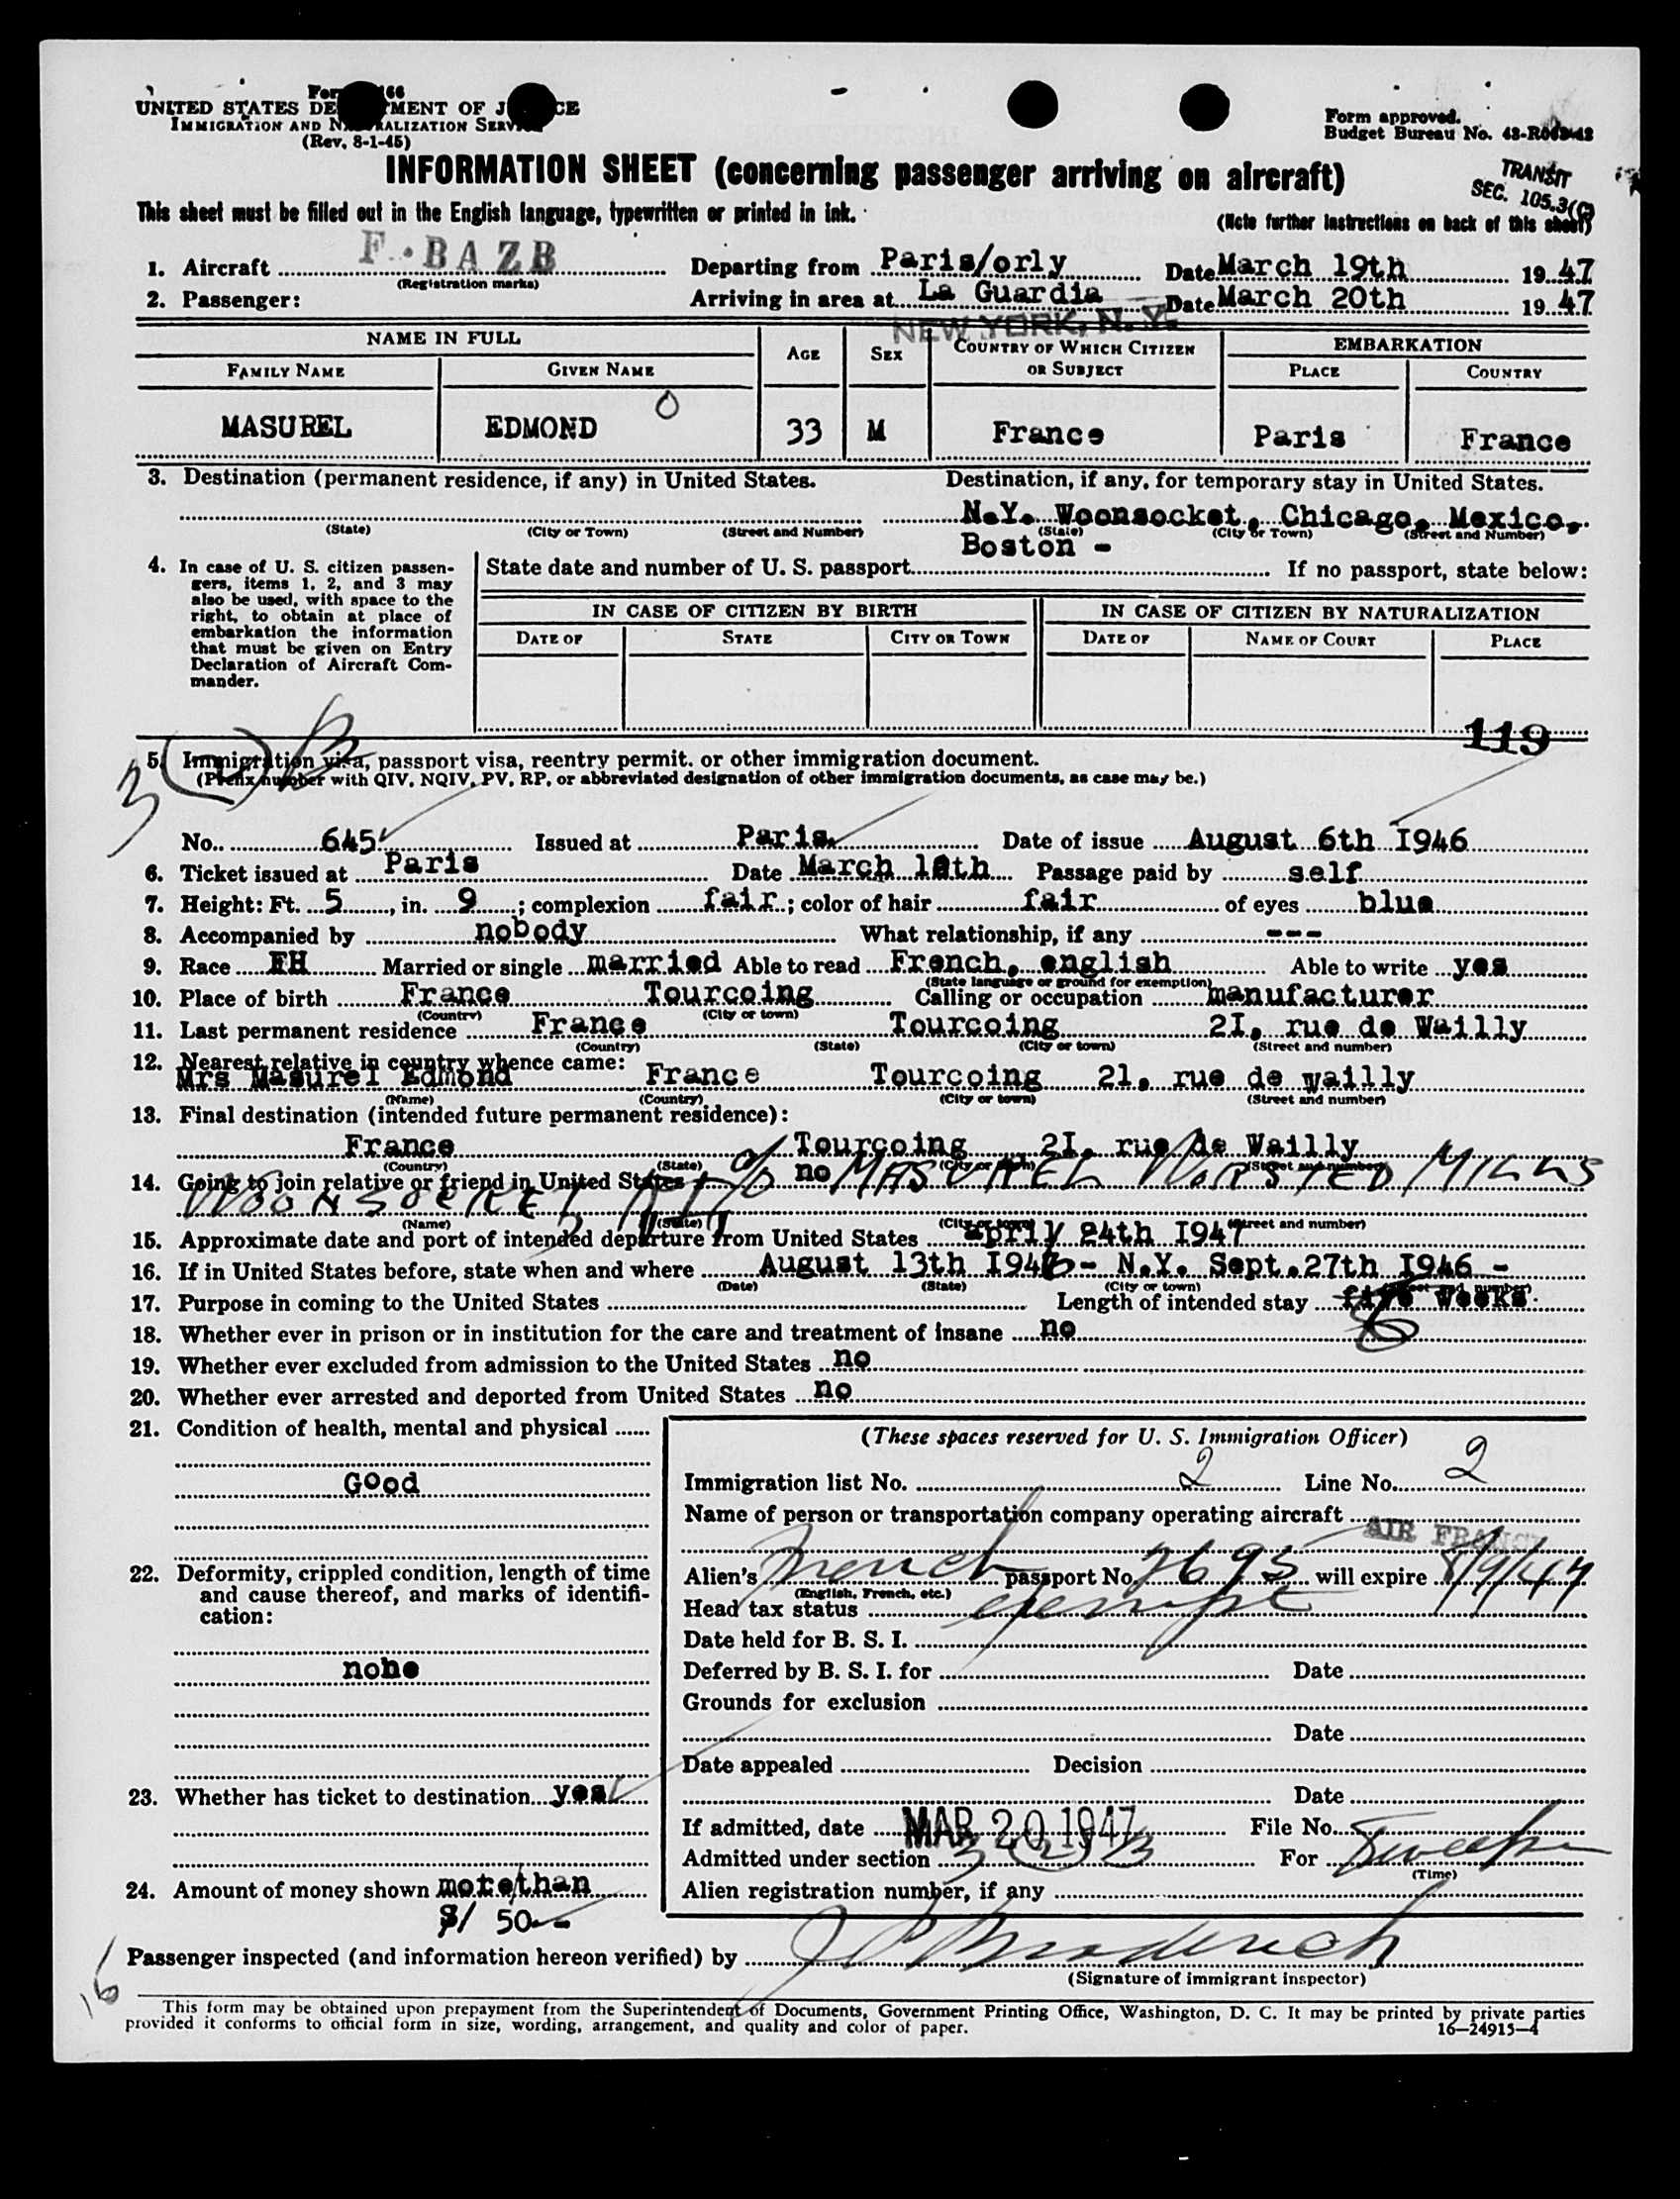 UNITED STATES DE MENT OF J CE
IMMIGRATION AND N RALIZATION SERV
(Rev. 8-1-45)
Form approved.
Budget Bureau No.
INFORMATION SHEET (concerning passenger arriving on aircraft)
TRANSIT
SEC. 105.3(C)
This sheet must be filled out in the English language, typewritten or printed in ink.
(Note further instructions on back of this sheet)
1. Aircraft F-BAZB Departing from Paris/orly Date March 19th 1947
(Registration marks)
2. Passenger: Arriving in area at La Guardia Date March 20th 1947
NEW YORK, N. Y.
NAME IN FULL AGE SEX COUNTRY OF WHICH CITIZEN OR SUBJECT EMBARKATION
FAMILY NAME GIVEN NAME PLACE COUNTRY
MASUREL EDMOND O 33 M France Paris France
3. Destination (permanent residence, if any) in United States. Destination, if any, for temporary stay in United States.
N.Y. Woonsocket, Chicago, Mexico,
(State) (City or Town) (Street and Number) (State) (City or Town) (Street and Number)
Boston -
4. In case of U. S. citizen passengers, items 1, 2, and 3 may also be used, with space to the right, to obtain at place of embarkation the information that must be given on Entry Declaration of Aircraft Commander.
State date and number of U. S. passport If no passport, state below:
IN CASE OF CITIZEN BY BIRTH IN CASE OF CITIZEN BY NATURALIZATION
DATE OF STATE CITY OR TOWN DATE OF NAME OF COURT PLACE
119
3 (2) B
5. Immigration visa, passport visa, reentry permit. or other immigration document.
(Prefix number with QIV, NQIV, PV, RP, or abbreviated designation of other immigration documents, as case may be.)
No. 645 Issued at Paris Date of issue August 6th I946
6. Ticket issued at Paris Date March 18th Passage paid by self
7. Height: Ft. 5, in. 9; complexion fair; color of hair fair of eyes blue
8. Accompanied by nobody What relationship, if any ---
9. Race FH Married or single married Able to read French, english Able to write yes
(State language or ground for exemption)
10. Place of birth France Tourcoing Calling or occupation manufacturer
(Country) (City or town)
11. Last permanent residence France Tourcoing 2I, rue de Wailly
(Country) (State) (City or town) (Street and number)
12. Nearest relative in country whence came:
Mrs Masurel Edmond France Tourcoing 21, rue de wailly
(Name) (Country) (City or town) (Street and number)
13. Final destination (intended future permanent residence):
France Tourcoing 2I, rue de Wailly
(Country) (State) (City or town) (Street and number)
14. Going to join relative or friend in United States no c/o MASUREL WORSTED MILLS
WOONSOCKET RI
(Name) (State) (City or town) (Street and number)
15. Approximate date and port of intended departure from United States april 24th I947
16. If in United States before, state when and where August 13th I946 - N.Y. Sept.27th I946 -
(Date) (State) (City or town) (Street and number)
17. Purpose in coming to the United States Length of intended stay five weeks.
18. Whether ever in prison or in institution for the care and treatment of insane no
19. Whether ever excluded from admission to the United States no
20. Whether ever arrested and deported from United States no
21. Condition of health, mental and physical
Good
22. Deformity, crippled condition, length of time and cause thereof, and marks of identification:
none
23. Whether has ticket to destination yes
24. Amount of money shown more than
$/ 50--
(These spaces reserved for U. S. Immigration Officer)
Immigration list No. 2 Line No. 2
Name of person or transportation company operating aircraft AIR FRANCE
Alien's French passport No. 2695 will expire
(English, French, etc.)
Head tax status exempt
Date held for B. S. I.
Deferred by B. S. I. for Date
Grounds for exclusion
Date
Date appealed Decision
Date
If admitted, date MAR 20 1947 File No.
Admitted under section 3 (2) B For weeks
(Time)
Alien registration number, if any
16
Passenger inspected (and information hereon verified) by J P Broderick
(Signature of immigrant inspector)
This form may be obtained upon prepayment from the Superintendent of Documents, Government Printing Office, Washington, D. C. It may be printed by private parties
provided it conforms to official form in size, wording, arrangement, and quality and color of paper.
16—24915-4